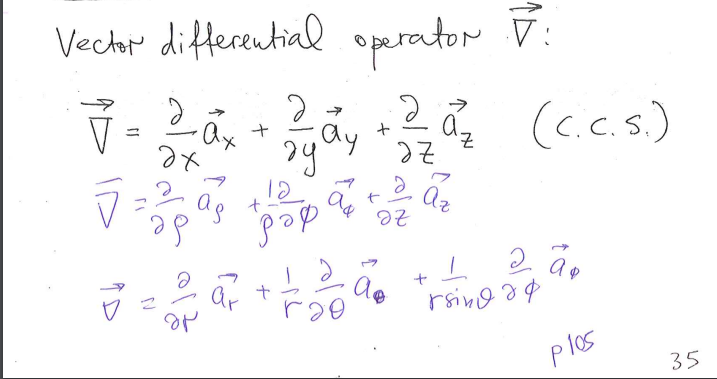 Vector differential operator ∇⃗:
∇⃗ = ∂/∂x a⃗ₓ + ∂/∂y a⃗_y + ∂/∂z a⃗_z (C.C.S.)
∇⃗ = ∂/∂ρ a⃗_ρ + 1/ρ ∂/∂φ a⃗_φ + ∂/∂z a⃗_z
∇⃗ = ∂/∂r a⃗_r + 1/r ∂/∂θ a⃗_θ + 1/(r sinθ) ∂/∂φ a⃗_φ
p105
35